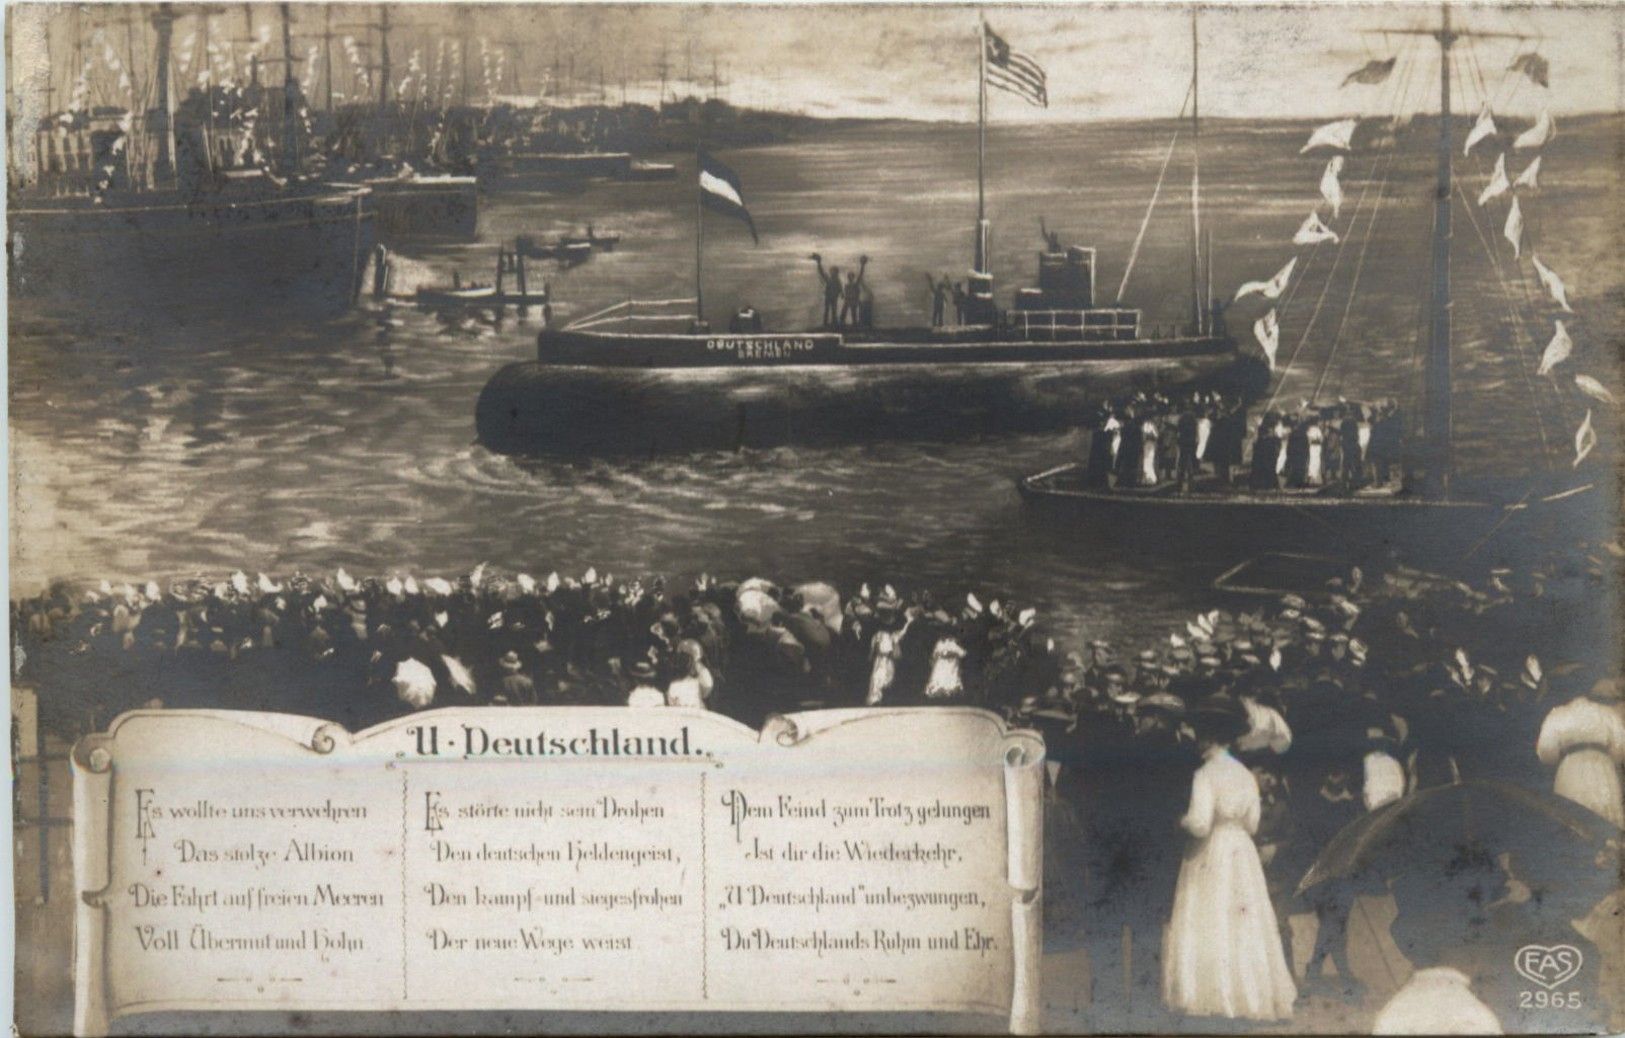 DEUTSCHLAND
BREMEN
U-Deutschland.
Es wollte uns verwehren
Das stolze Albion
Die Fahrt auf freien Meeren
Voll Übermut und Hohn
Es störte nicht sein Drohen
Den deutschen Heldengeist,
Den kampf- und siegesfrohen
Der neue Wege weist
Dem Feind zum Trotz gelungen
Ist dir die Wiederkehr,
„U Deutschland" unbezwungen,
Du Deutschlands Ruhm und Ehr.
EAS
2965